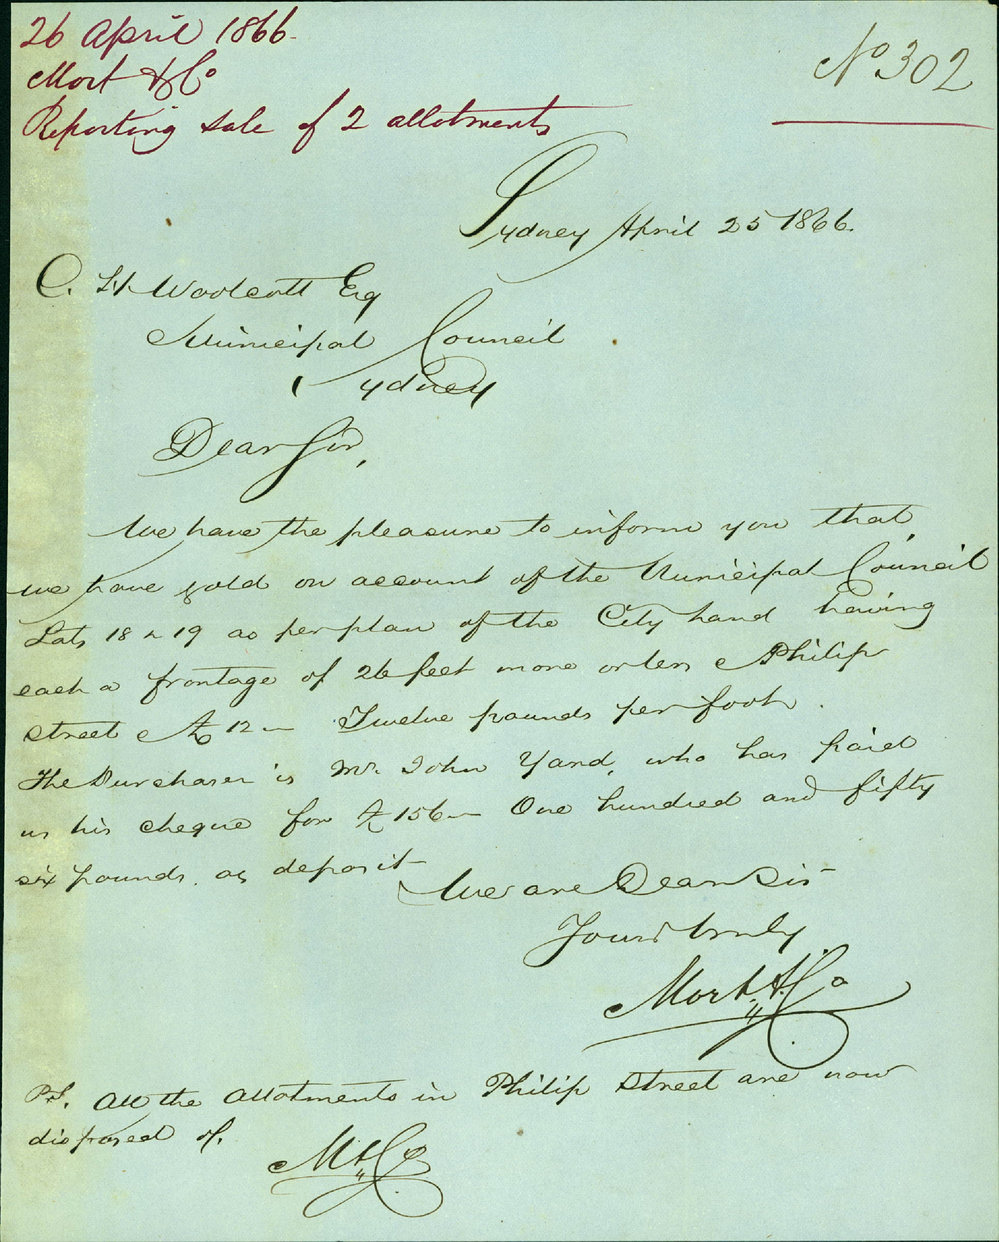 26 April 1866.
Mort & Co
Reporting sale of 2 allotments
No 302
Sydney April 25 1866.
C. H. Woolcott Esq
Municipal Council
Sydney
Dear Sir,
We have the pleasure to inform you that,
we have sold on account of the Municipal Council
Lots 18 & 19 as per plan of the City Land having
each a frontage of 26 feet more or less Philip
Street At £12 - Twelve pounds per foot.
The Purchaser is Mr. John Yand, who has paid
us his cheque for £156 - One hundred and fifty
six pounds. as deposit
We are Dear Sir
Yours truly
Mort & Co
P.S. All the allotments in Philip Street are now
disposed of.
M & Co